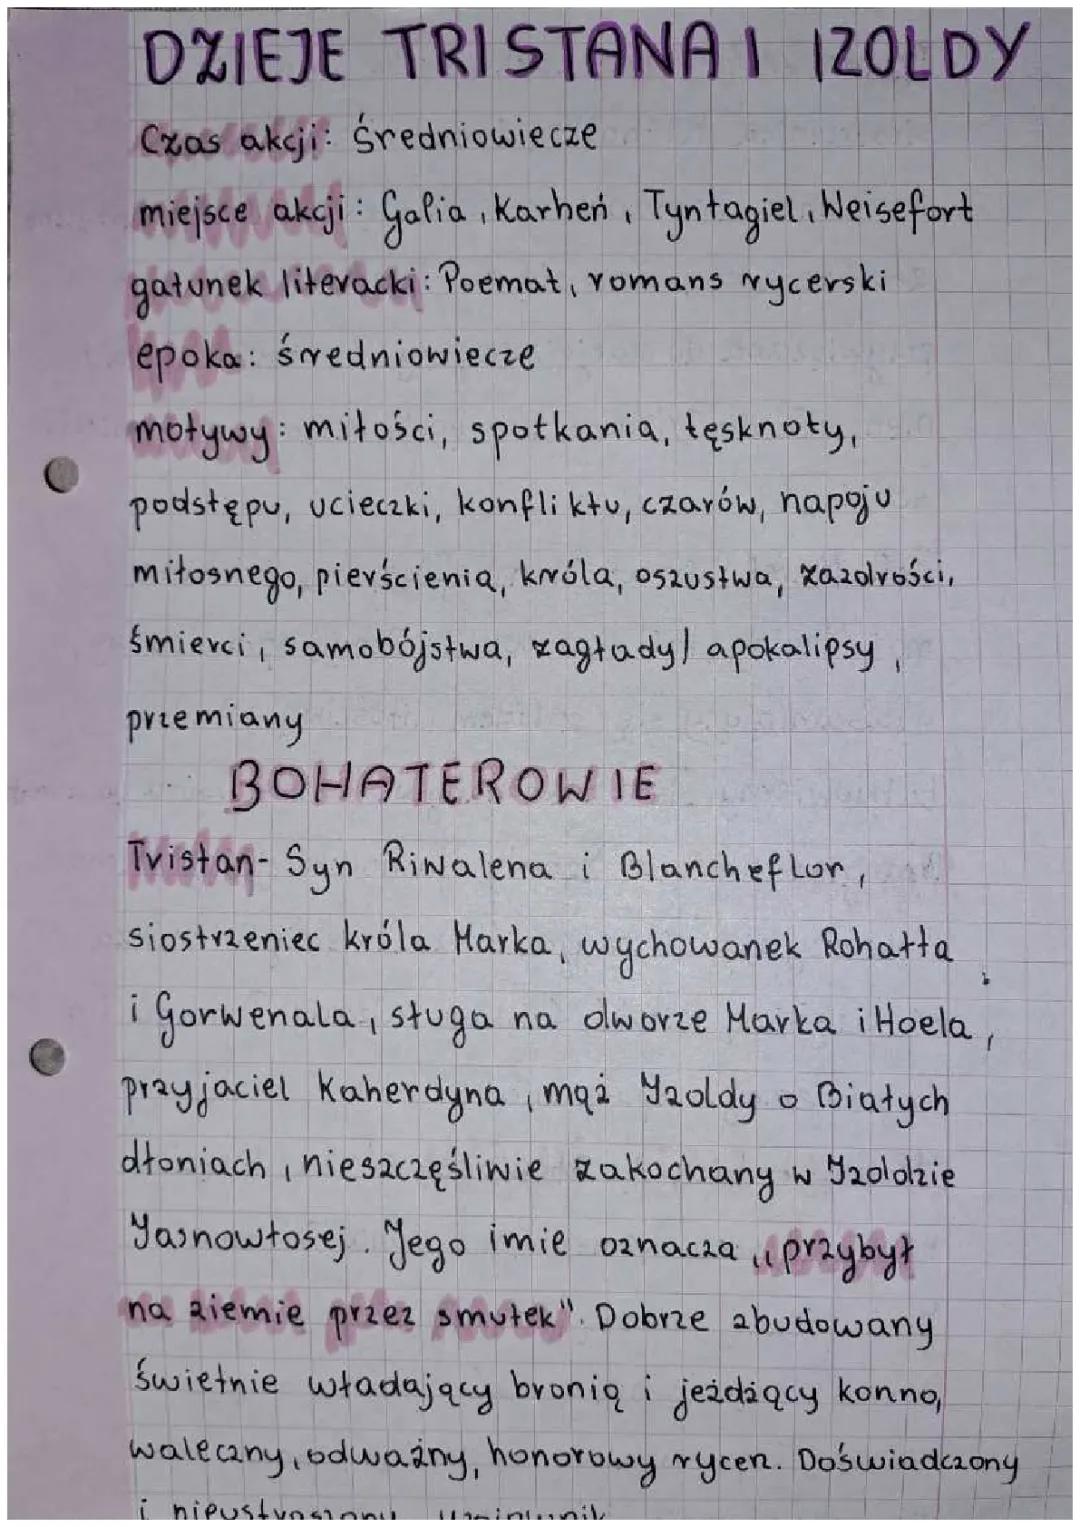 DZIEJE TRISTANA I IZOLDY
Czas akcji: średniowiecze
miejsce akcji: Galia, Karheń, Tyntagiel, Weisefort
gatunek literacki: Poemat, romans rycerski
epoka: średniowiecze
motywy: miłości, spotkania, tęsknoty,
podstępu, ucieczki, konfliktu, czarów, napoju
miłosnego, pierścienia, króla, oszustwa, zazdrości,
śmierci, samobójstwa, zagłady/ apokalipsy,
przemiany
BOHATEROWIE
Tristan- Syn Riwalena i Blancheflor,
siostrzeniec króla Marka, wychowanek Rohałta
i Gorwenala, sługa na dworze Marka i Hoela,
przyjaciel Kaherdyna, mąż Izoldy o Białych
dłoniach, nieszczęśliwie zakochany w Izoldzie
Jasnowłosej. Jego imie oznacza "przybył
na ziemie przez smutek". Dobrze zbudowany
świetnie władający bronią i jeżdżący konno,
waleczny, odważny, honorowy rycerz. Doświadczony
i nieustraszony